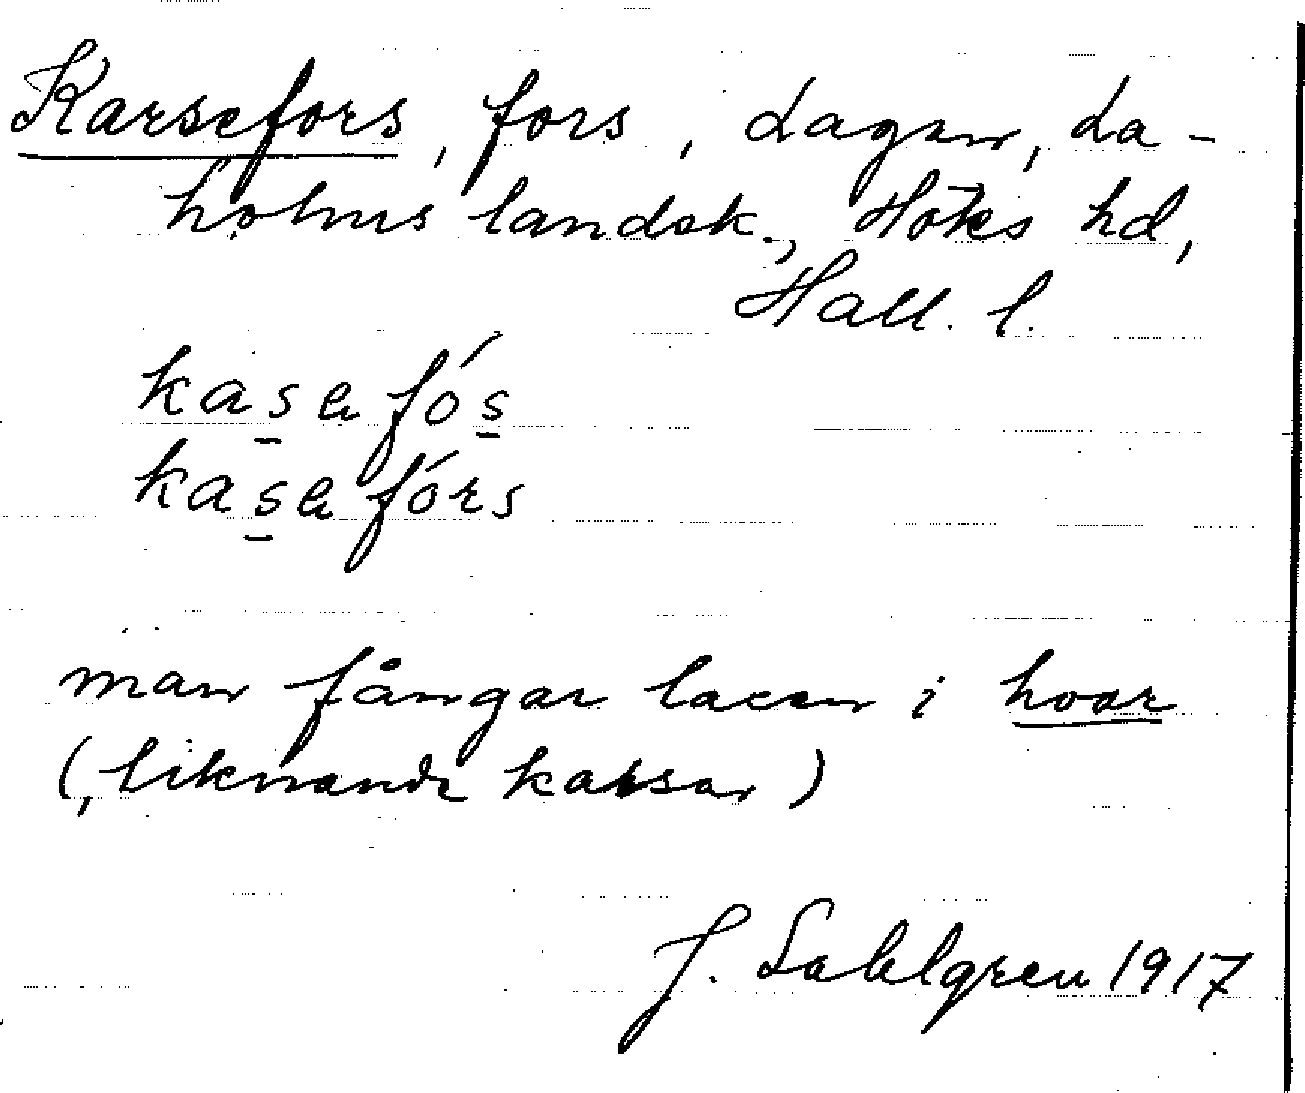 Karsefors, fors, Lagan, La-
holms landsk., Höks hd,
Hall. l.
kasafós
kasafórs
man fångar laxen i hoar
(, liknande karsar)
J. Sahlgren 1917